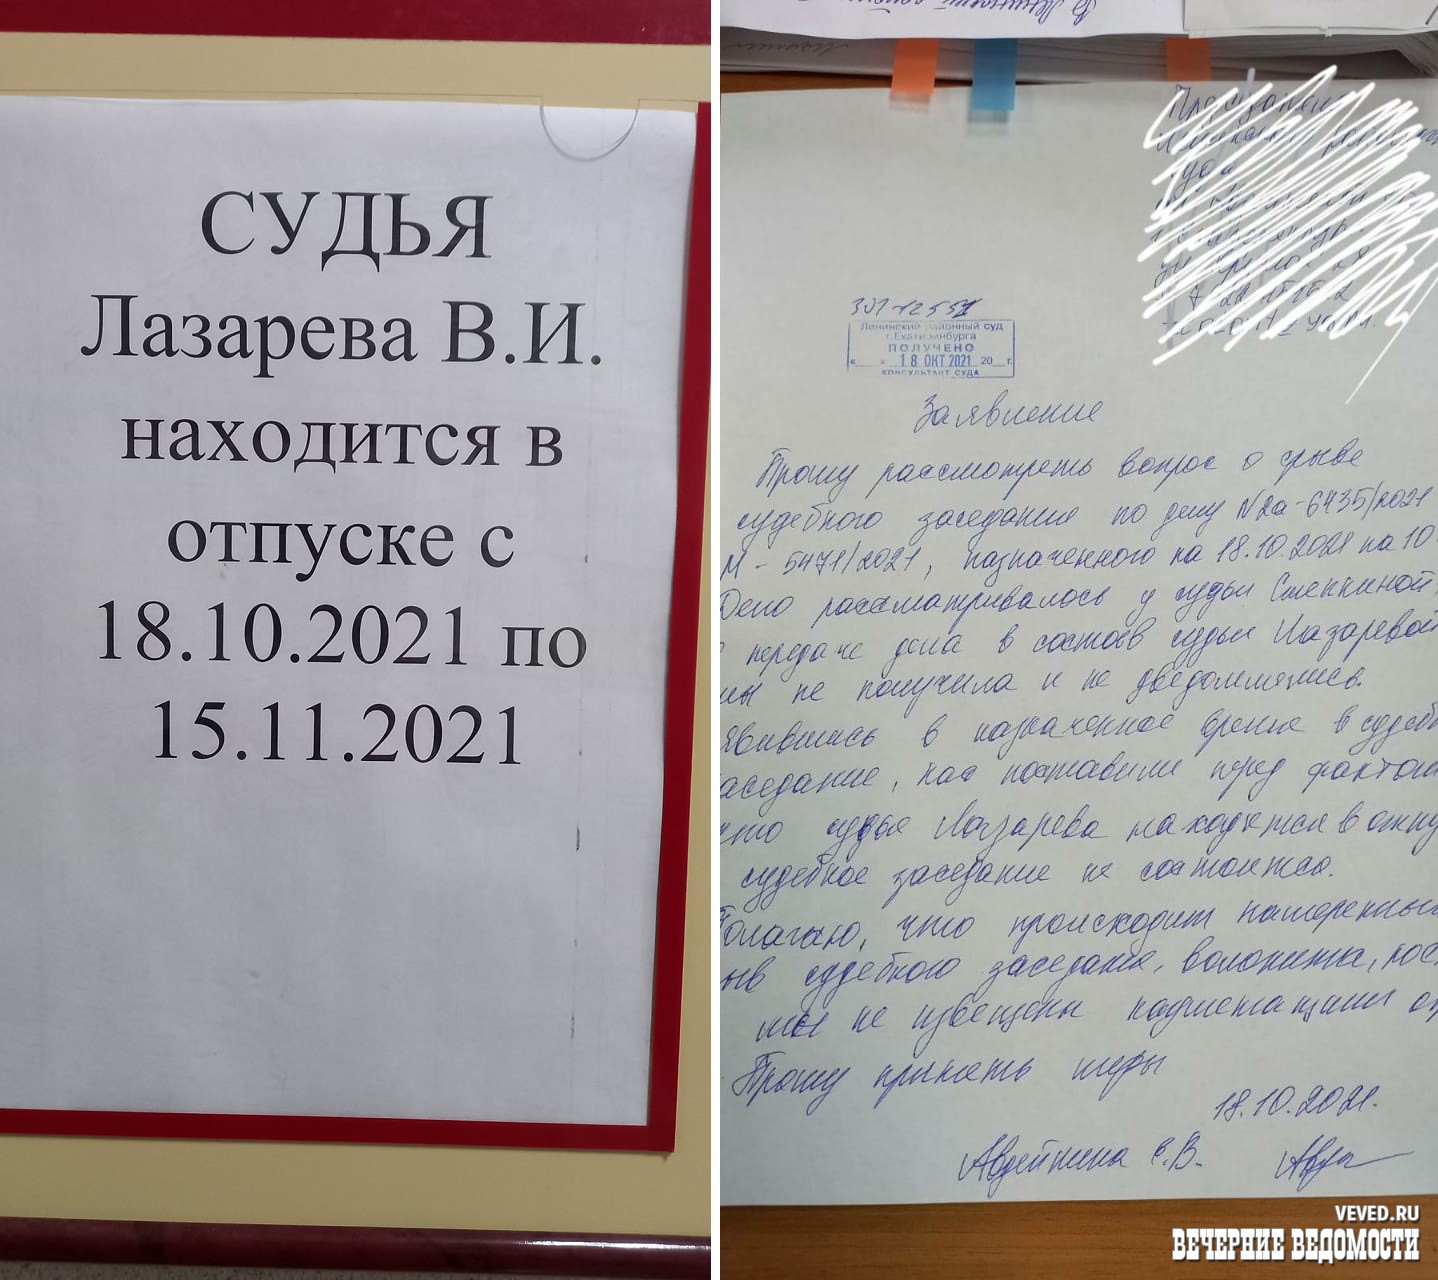 СУДЬЯ
Лазарева В.И.
находится в
отпуске с
18.10.2021 по
15.11.2021
Ленинский районный суд
г.Екатеринбурга
ПОЛУЧЕНО
« » 18 ОКТ 2021 20 г.
КОНСУЛЬТАНТ СУДА
Заявление
Прошу рассмотреть вопрос о срыве
судебного заседания по делу N2а-6435/2021
М-5471/2021, назначенного на 18.10.2021 на 10
Дело рассматривалось у судьи Степкиной,
передаче дела в состав судьи Лазаревой
мы не получила и не уведомлялись.
явившись в назначенное время в судеб
аседание, нас поставили перед фактом
что судья Лазарева находится в отпу
судебное заседание не состоится.
Полагаю, что происходит намеренный
ыв судебного заседания, волокита, пос
мы не извещены надлежащим об
Прошу принять меры
18.10.2021.
Авдейкина Е.В.
VEVED.RU
ВЕЧЕРНИЕ ВЕДОМОСТИ